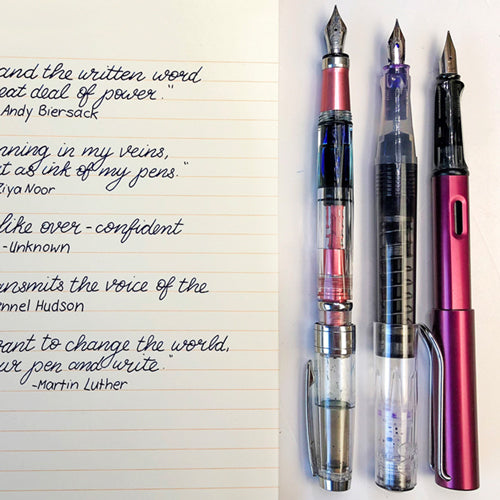 and the written word
eat deal of power."
Andy Biersack
nning in my veins,
t as ink of my pens."
Ziya Noor
like over-confident
-Unknown
ansmits the voice of the
nnel Hudson
ant to change the world,
ur pen and write."
-Martin Luther